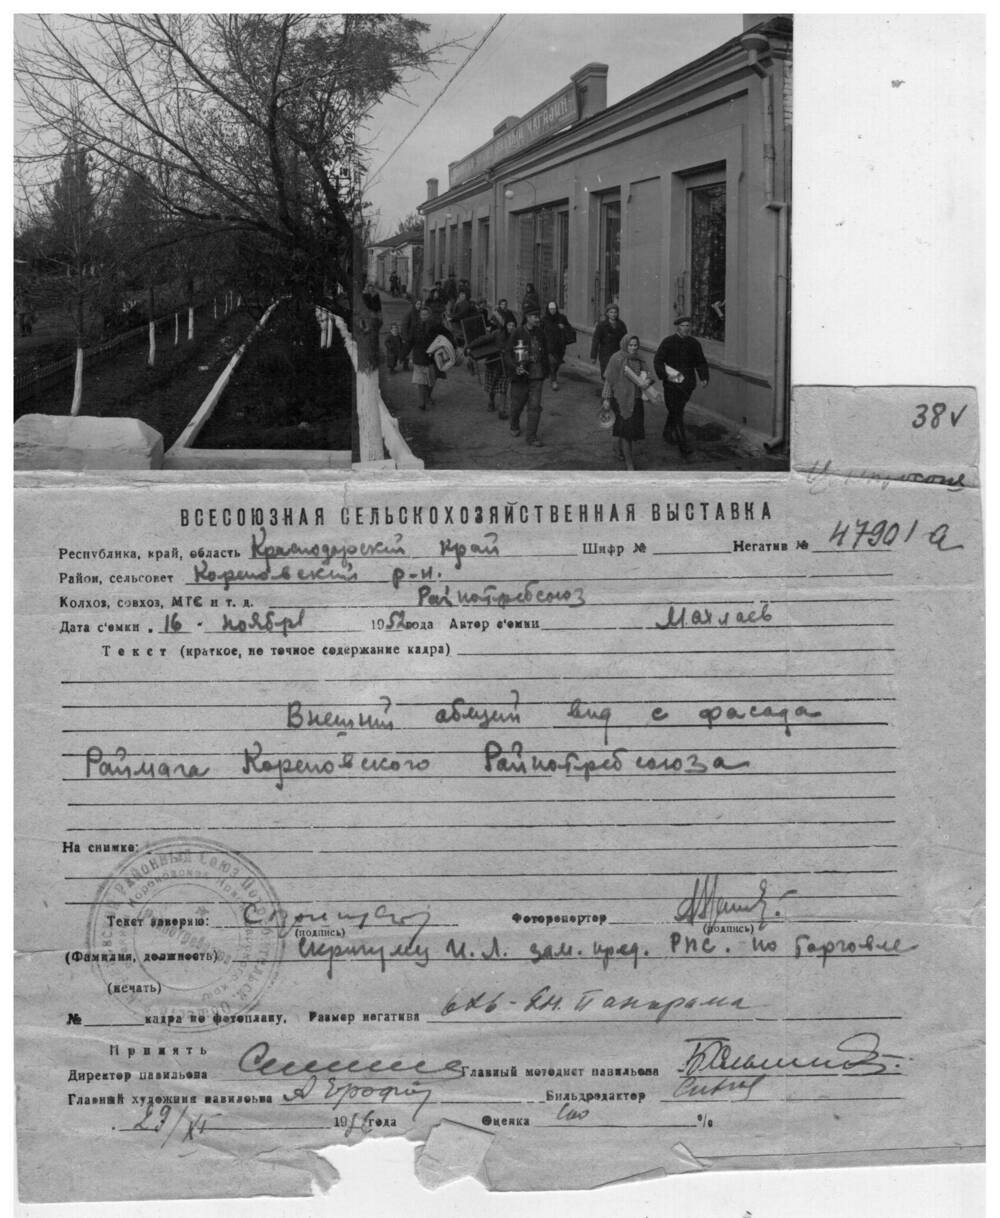 МАГАЗИН
38 v
ВСЕСОЮЗНАЯ СЕЛЬСКОХОЗЯЙСТВЕННАЯ ВЫСТАВКА
Республика, край, область Краснодарский край Шифр № Негатив № 47901 а
Район, сельсовет Кореновский р-н.
Колхоз, совхоз, МТС и т. д. Райпотребсоюз
Дата с'емки . 16 - ноября 1952 года Автор с'емки Махлаев
Текст (краткое, но точное содержание кадра)
Внешний общий вид с фасада
Раймага Кореновского Райпотребсоюза
На снимке:
Текст заверяю: Фоторепортер
(подпись) (подпись)
(Фамилия, должность) И. Л. зам. пред. РПС. по торговле
(печать)
№ кадра по фотоплану. Размер негатива 6х6 - Панорама
Принять
Директор павильона Главный методист павильона
Главный художник павильона Бильдредактор
. 29/XI 195 года Оценка 100 %